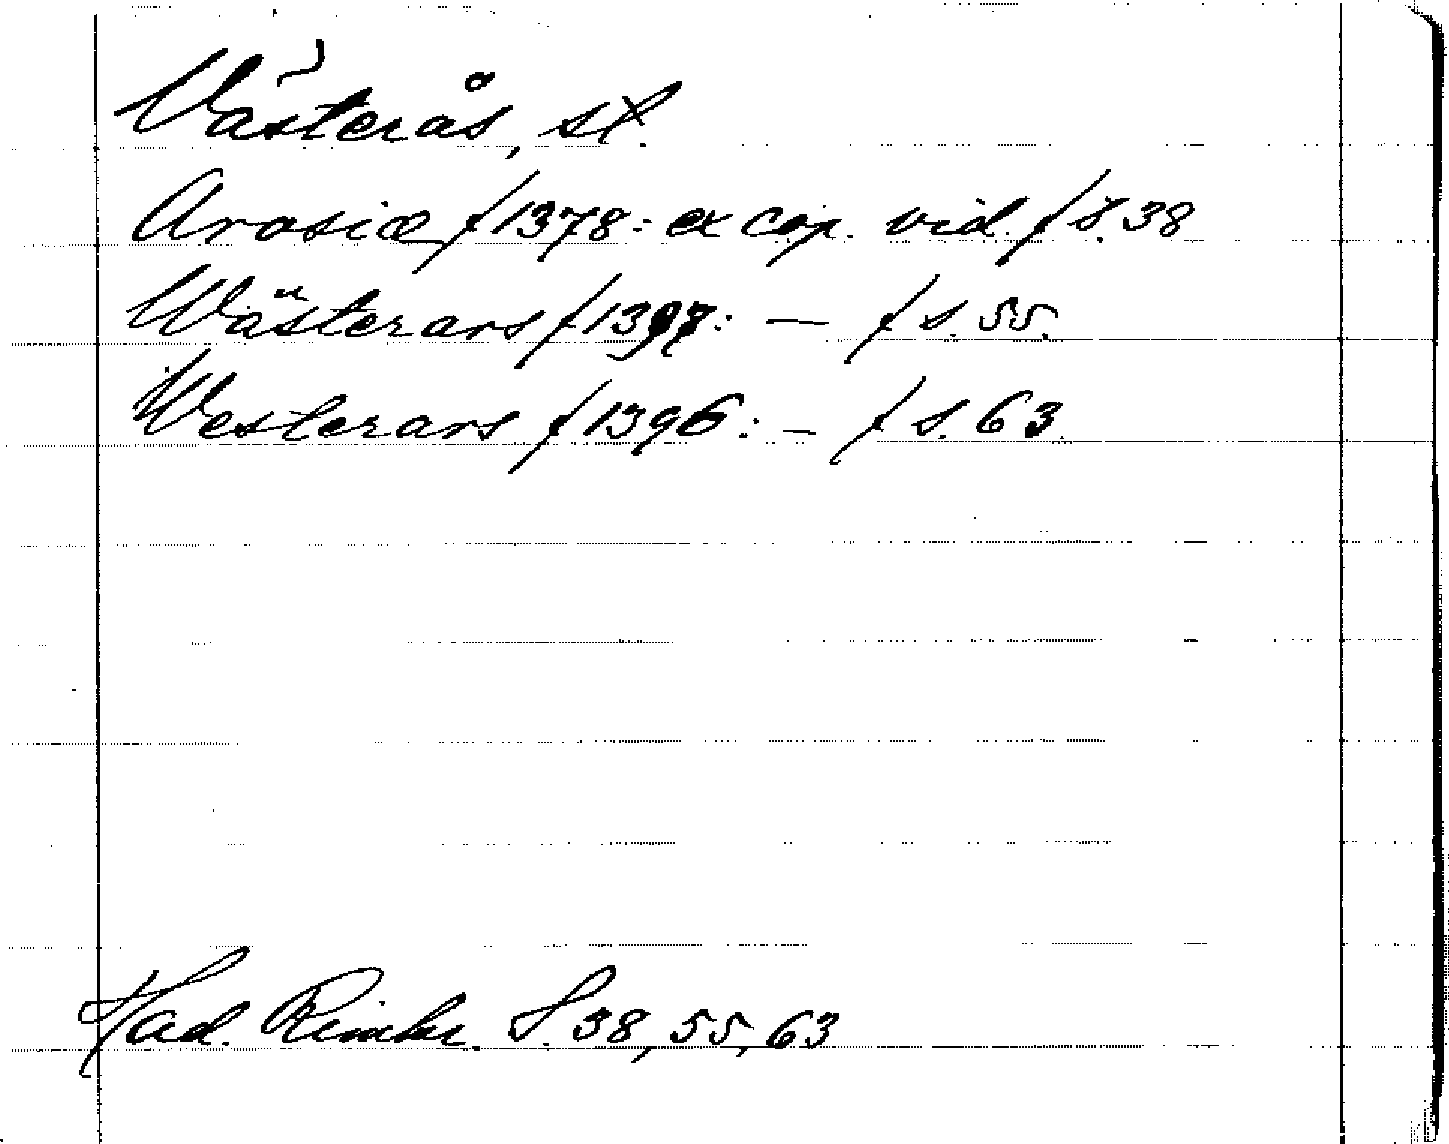 Västerås, st.
Arosiæ ƒ 1378: ex cop. vid. ƒ s. 38
Wästerars ƒ 1397: — ƒ s. 55.
Westerars ƒ 1396: — ƒ s. 63.
Had. Rimbe. S. 38, 55, 63